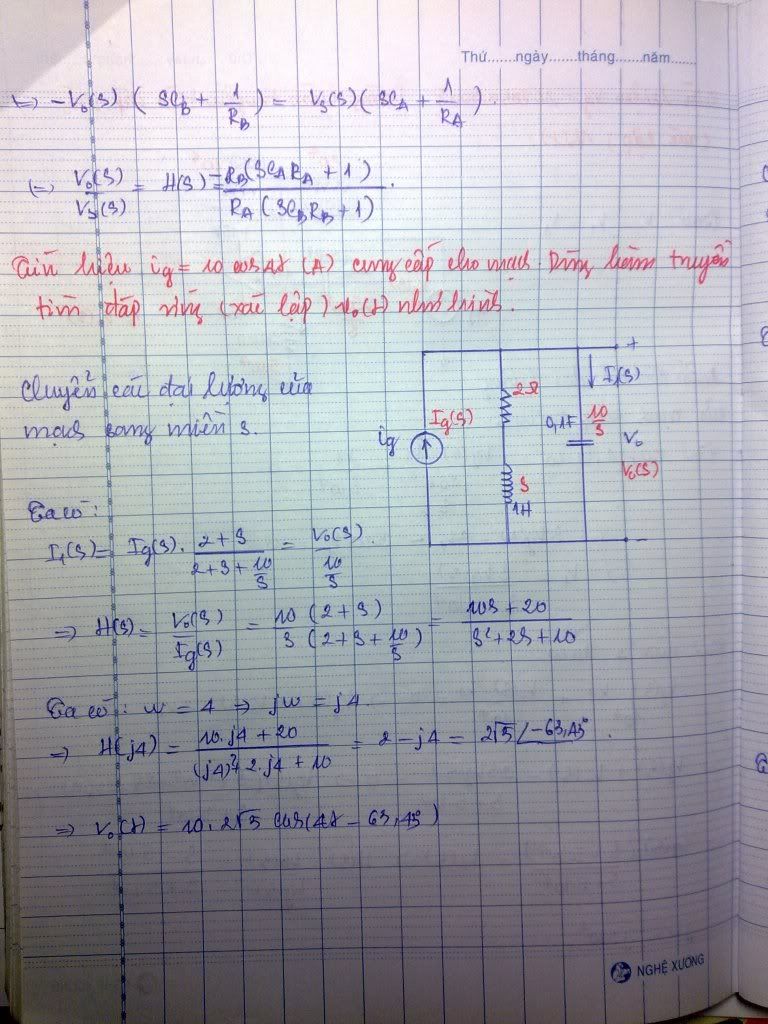 Thứ.......ngày.......tháng.......năm.......
⇔ -V₀(s) ( sC_B + 1/R_B ) = V_s(s) ( sC_A + 1/R_A ).
⇔ V₀(s)/V_s(s) = H(s) = -R_B(sC_A R_A + 1) / R_A(sC_B R_B + 1).
Tín hiệu ig = 10 cos4t (A) cung cấp cho mạch. Dùng hàm truyền
tìm đáp ứng (xác lập) v₀(t) như hình.
Chuyển các đại lượng của
mạch sang miền s.
ig
Ig(s)
2Ω
s
1H
0,1F
10/s
I₁(s)
+
V₀
V₀(s)
-
Ta có:
I₁(s) = Ig(s) . (2+s) / (2+s+10/s) = V₀(s) / (10/s).
⇒ H(s) = V₀(s)/Ig(s) = 10(2+s) / s(2+s+10/s) = (10s+20) / (s²+2s+10)
Ta có: w = 4 ⇒ jw = j4.
⇒ H(j4) = (10.j4+20) / ((j4)²+2.j4+10) = 2-j4 = 2√5 ∠-63,43° .
⇒ v₀(t) = 10.2√5 cos(4t - 63,43°)
NGHỆ XƯƠNG